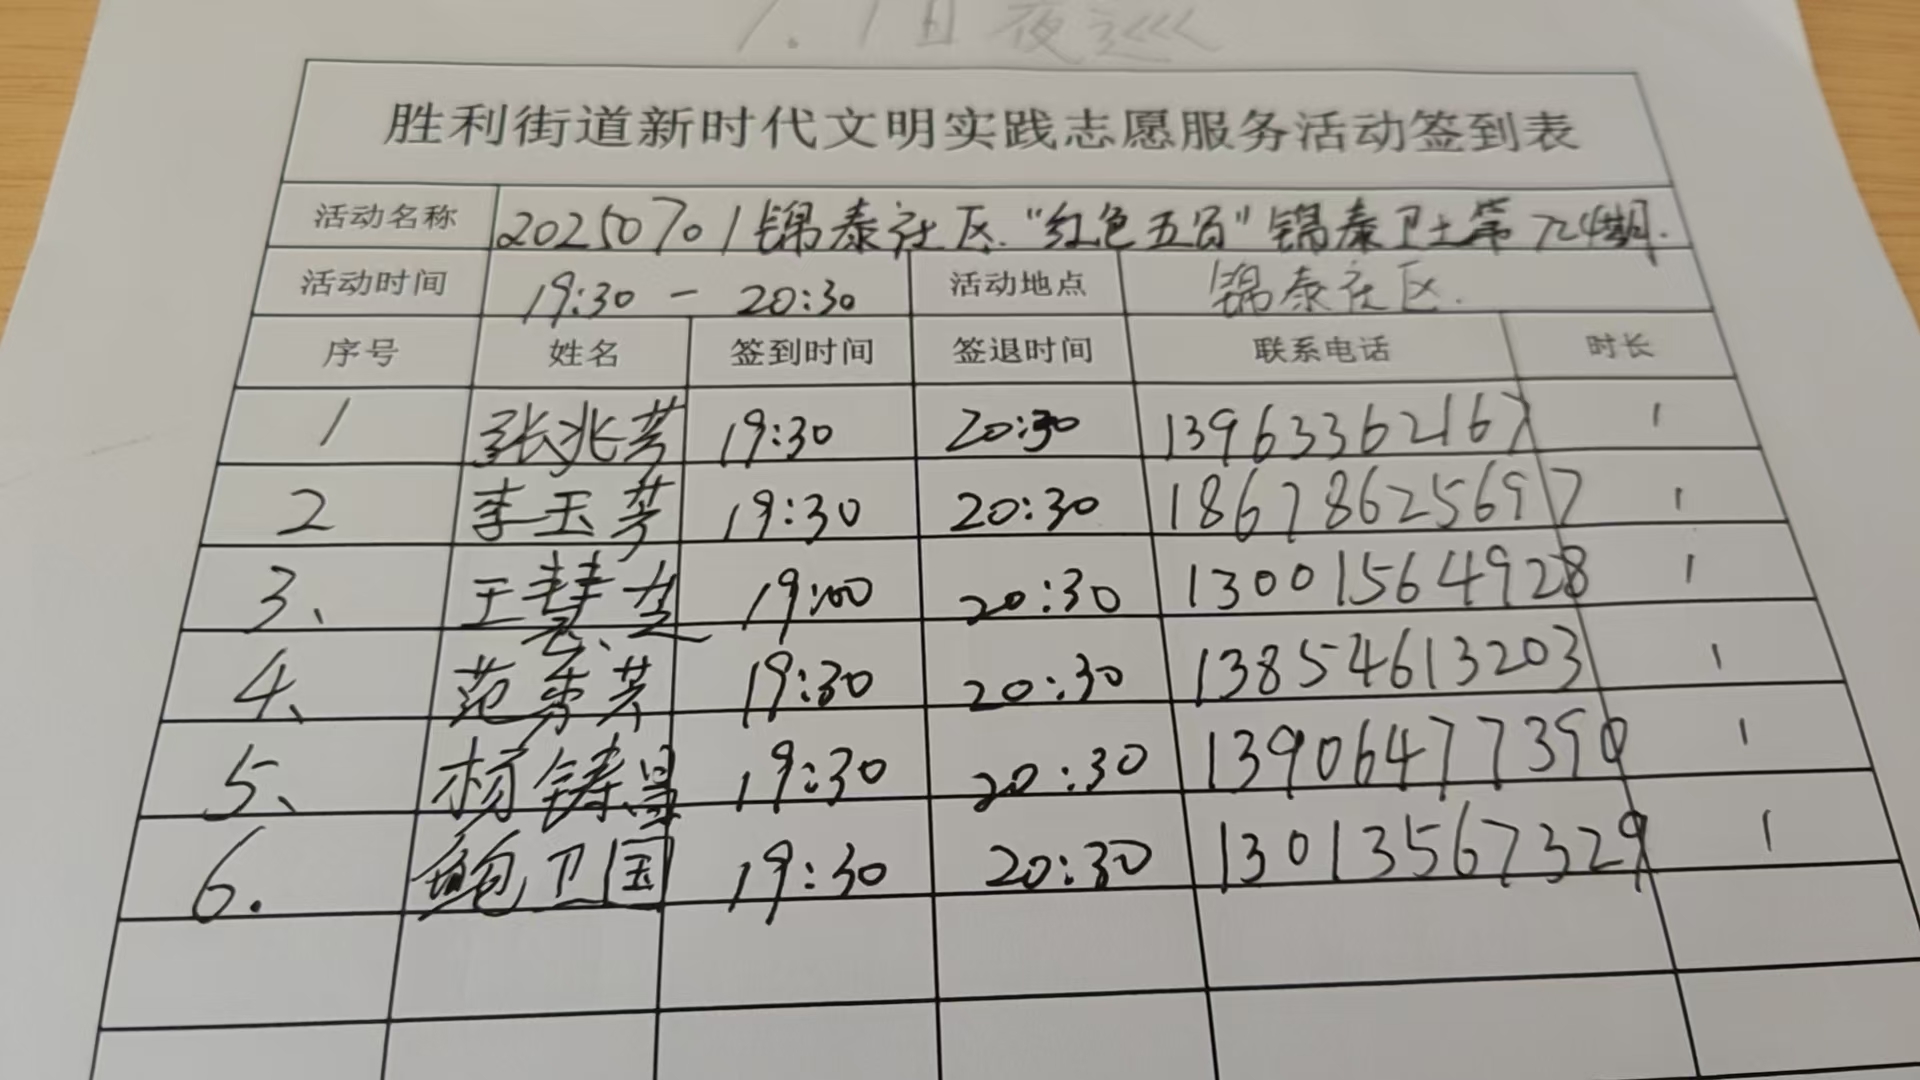 7.1日夜巡
胜利街道新时代文明实践志愿服务活动签到表
活动名称 20250701锦泰社区.“红色五员”锦泰卫士第724期.
活动时间 19:30 - 20:30 活动地点 锦泰社区.
序号 姓名 签到时间 签退时间 联系电话 时长
1 张兆芳 19:30 20:30 13963362167 1
2 李玉芳 19:30 20:30 18678625697 1
3、 王慧 19:00 20:30 13001564928 1
4、 范秀芳 19:30 20:30 13854613203 1
5、 杨铸昌 19:30 20:30 13906477390 1
6. 鲍卫国 19:30 20:30 13013567329 1